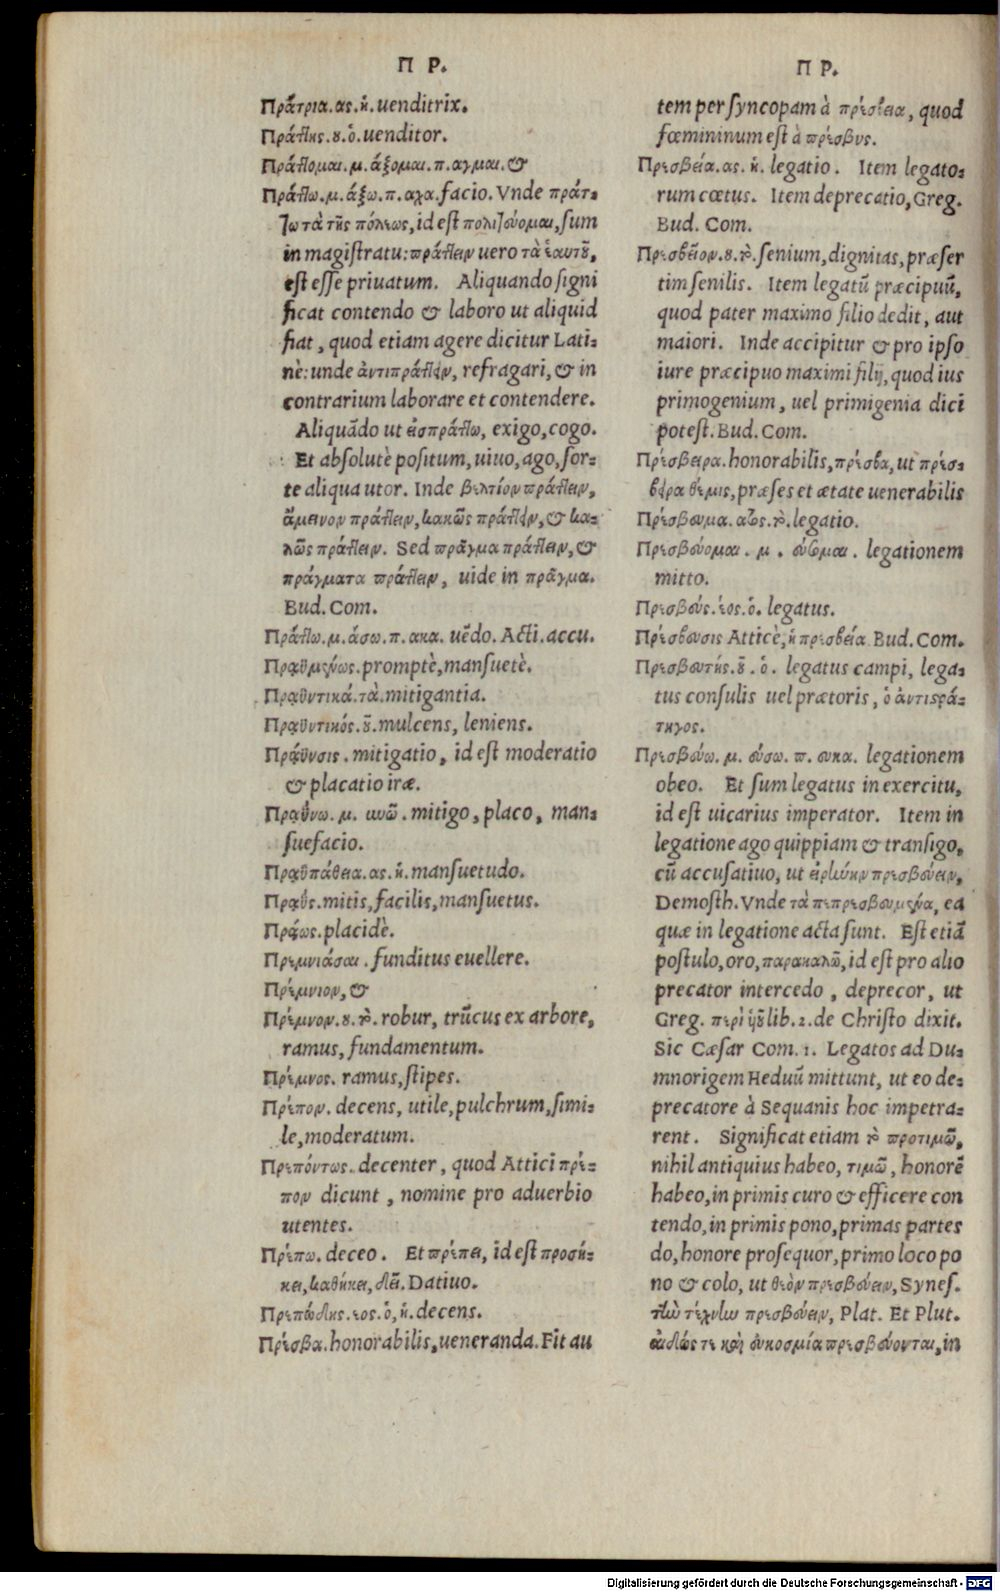 Π Ρ.
Πράτρια.ας.ἡ.uenditrix.
Πράτης.ου.ὁ.uenditor.
Πράττομαι.μ.άξομαι.π.αγμαι.&
Πράττω.μ.άξω.π.αχα.facio.Vnde πράτ-
τω τὰ τῆς πόλεως, id est πολιτεύομαι, sum
in magistratu: πράττειν uero τὰ ἑαυτοῦ,
est esse priuatum. Aliquando signi
ficat contendo & laboro ut aliquid
fiat, quod etiam agere dicitur Lati-
nè: unde ἀντιπράττειν, refragari, & in
contrarium laborare et contendere.
Aliquãdo ut εἰσπράττω, exigo, cogo.
Et absolutè positum, uiuo, ago, for-
te aliqua utor. Inde βελτίον πράττειν,
ἄμεινον πράττειν, κακῶς πράττειν, & κα-
λῶς πράττειν. Sed πρᾶγμα πράττειν, &
πράγματα πράττειν, uide in πρᾶγμα.
Bud. Com.
Πράττω.μ.άσω.π.ακα. uẽdo. Acti. accu.
Πραϋμενως. promptè, mansuetè.
Πραϋντικά.τὰ.mitigantia.
Πραϋντικός.οῦ.mulcens, leniens.
Πράϋνσις. mitigatio, id est moderatio
& placatio iræ.
Πραΰνω.μ. υνῶ. mitigo, placo, man-
suefacio.
Πραϋπάθεια.ας.ἡ.mansuetudo.
Πραΰς.mitis, facilis, mansuetus.
Πράως.placidè.
Πρεμνιάσαι. funditus euellere.
Πρέμνιον, &
Πρέμνον.ου.τὸ.robur, trũcus ex arbore,
ramus, fundamentum.
Πρέμνος. ramus, stipes.
Πρέπον. decens, utile, pulchrum, simi-
le, moderatum.
Πρεπόντως. decenter, quod Attici πρέ-
πον dicunt, nomine pro aduerbio
utentes.
Πρέπω. deceo. Et πρέπει, id est προσή-
κει, καθήκει, δεῖ. Datiuo.
Πρεπώδης.εος.ὁ,ἡ.decens.
Πρέσβα.honorabilis, ueneranda. Fit au
Π Ρ.
tem per syncopam à πρέσβεια, quod
fœmininum est à πρέσβυς.
Πρεσβεία.ας.ἡ. legatio. Item legato-
rum cœtus. Item deprecatio, Greg.
Bud. Com.
Πρεσβεῖον.ου.τὸ.senium, dignitas, præser
tim senilis. Item legatũ præcipuũ,
quod pater maximo filio dedit, aut
maiori. Inde accipitur & pro ipso
iure præcipuo maximi filij, quod ius
primogenium, uel primigenia dici
potest. Bud. Com.
Πρέσβειρα.honorabilis, πρέσβα, ut πρέσ-
βειρα θέμις, præses et ætate uenerabilis
Πρέσβευμα.ατος.τὸ.legatio.
Πρεσβεύομαι. μ. εύσομαι. legationem
mitto.
Πρεσβεύς.έος.ὁ. legatus.
Πρέσβευσις Atticè, ἡ πρεσβεία. Bud. Com.
Πρεσβευτής.οῦ. ὁ. legatus campi, lega-
tus consulis uel prætoris, ὁ ἀντιστρά-
τηγος.
Πρεσβεύω. μ. εύσω. π. ευκα. legationem
obeo. Et sum legatus in exercitu,
id est uicarius imperator. Item in
legatione ago quippiam & transigo,
cũ accusatiuo, ut εἰρήνην πρεσβεύειν,
Demosth. Vnde τὰ πεπρεσβευμένα, ea
quæ in legatione acta sunt. Est etiã
postulo, oro, παρακαλῶ, id est pro alio
precator intercedo, deprecor, ut
Greg. περὶ υἱοῦ lib. 2. de Christo dixit.
Sic Cæsar Com. 1. Legatos ad Du-
mnorigem Heduũ mittunt, ut eo de-
precatore à Sequanis hoc impetra-
rent. Significat etiam τὸ προτιμῶ,
nihil antiquius habeo, τιμῶ, honorẽ
habeo, in primis curo & efficere con
tendo, in primis pono, primas partes
do, honore prosequor, primo loco po
no & colo, ut θεὸν πρεσβεύειν, Synes.
τὴν τέχνην πρεσβεύειν, Plat. Et Plut.
αἰδώς τε καὶ εὐκοσμία πρεσβεύονται, in
Digitalisierung gefördert durch die Deutsche Forschungsgemeinschaft - DFG